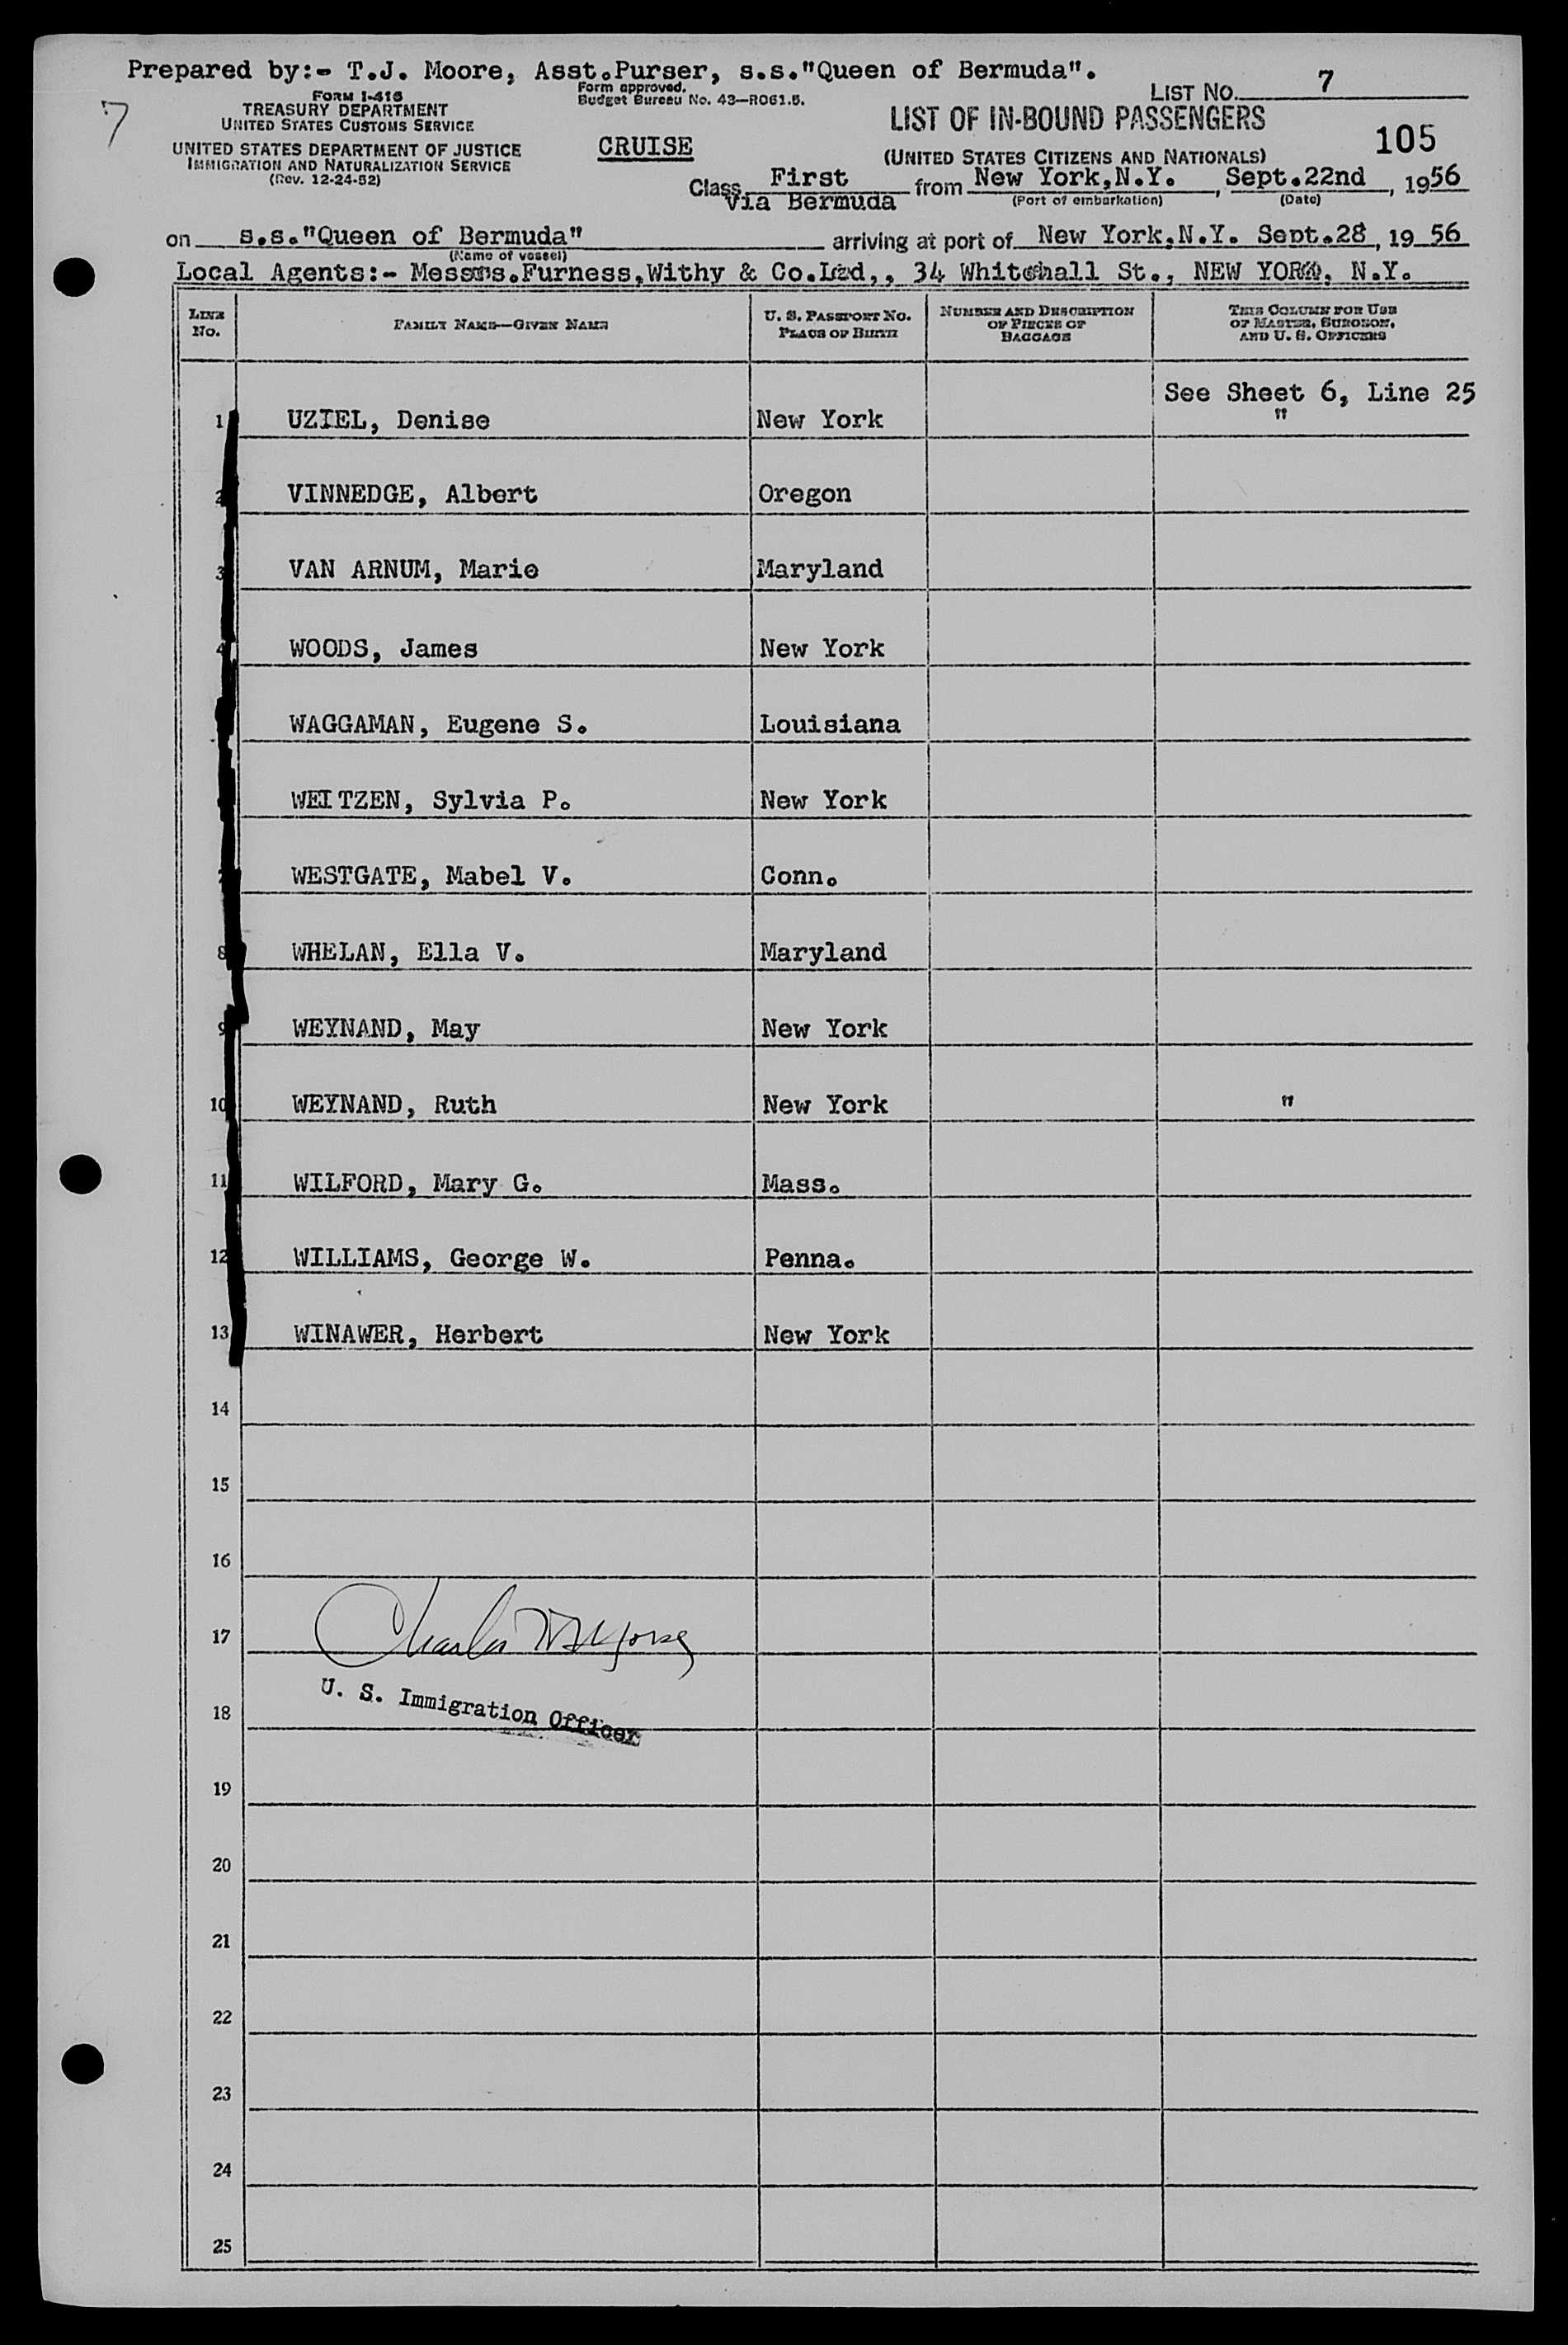 Prepared by:- T.J. Moore, Asst.Purser, s.s."Queen of Bermuda".
7
FORM I-416
TREASURY DEPARTMENT
UNITED STATES CUSTOMS SERVICE
UNITED STATES DEPARTMENT OF JUSTICE
IMMIGRATION AND NATURALIZATION SERVICE
(Rev. 12-24-52)
Form approved.
Budget Bureau No. 43—R061.5.
CRUISE
LIST NO. 7
LIST OF IN-BOUND PASSENGERS
105
(UNITED STATES CITIZENS AND NATIONALS)
Class First from New York,N.Y. , Sept.22nd , 1956
Via Bermuda (Port of embarkation) (Date)
on s.s."Queen of Bermuda" arriving at port of New York,N.Y. Sept.28, 19 56
(Name of vessel)
Local Agents:- Messrs.Furness,Withy & Co.Ltd,, 34 Whitehall St., NEW YORK, N.Y.
LINE No. FAMILY NAME—GIVEN NAME U. S. PASSPORT NO. PLACE OF BIRTH NUMBER AND DESCRIPTION OF PIECES OF BAGGAGE THIS COLUMN FOR USE OF MASTER, SURGEON, AND U. S. OFFICERS
See Sheet 6, Line 25
1 UZIEL, Denise New York "
2 VINNEDGE, Albert Oregon
3 VAN ARNUM, Marie Maryland
4 WOODS, James New York
WAGGAMAN, Eugene S. Louisiana
WEITZEN, Sylvia P. New York
7 WESTGATE, Mabel V. Conn.
8 WHELAN, Ella V. Maryland
9 WEYNAND, May New York
10 WEYNAND, Ruth New York "
11 WILFORD, Mary G. Mass.
12 WILLIAMS, George W. Penna.
13 WINAWER, Herbert New York
14
15
16
17 Charles
U. S. Immigration Officer
18
19
20
21
22
23
24
25